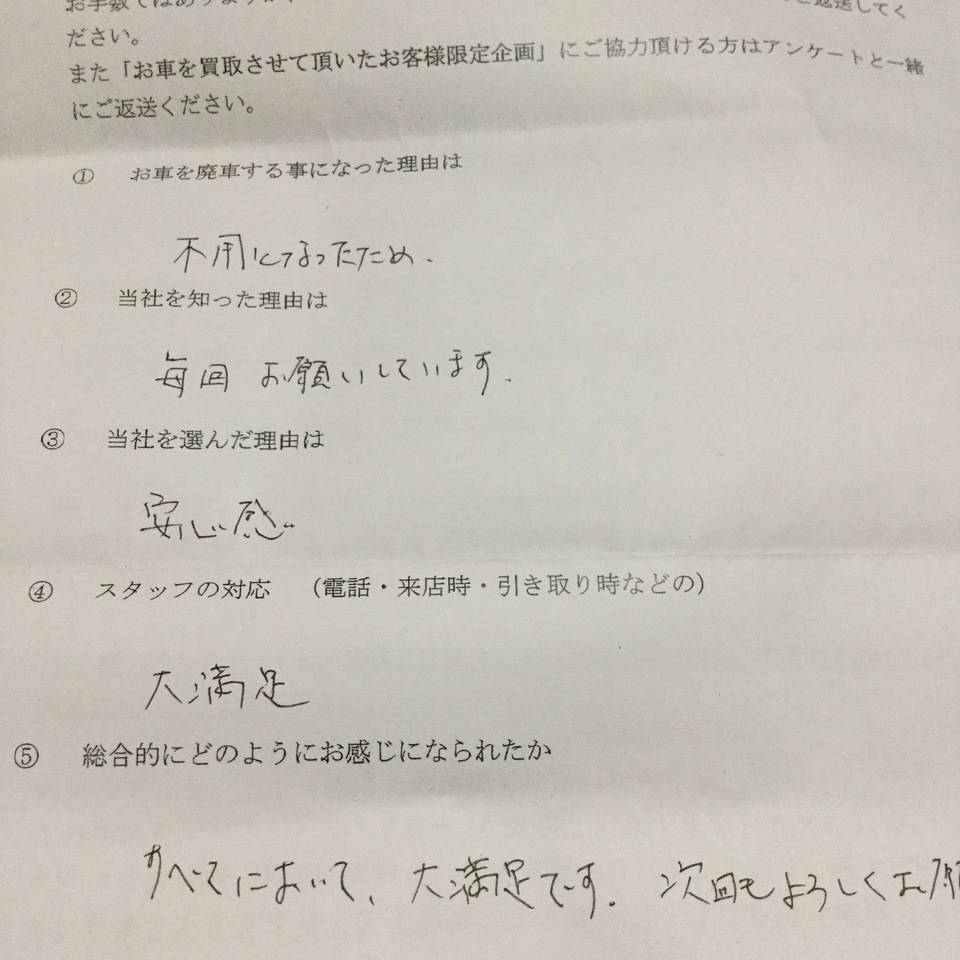 お手数ではありますが、
ご返送してく
ださい。
また「お車を買取させて頂いたお客様限定企画」にご協力頂ける方はアンケートと一緒
にご返送ください。
① お車を廃車する事になった理由は
不用になったため.
② 当社を知った理由は
毎回 お願いしています.
③ 当社を選んだ理由は
安心感..
④ スタッフの対応 （電話・来店時・引き取り時などの）
大満足
⑤ 総合的にどのようにお感じになられたか
すべてにおいて、大満足です. 次回もよろしくお願